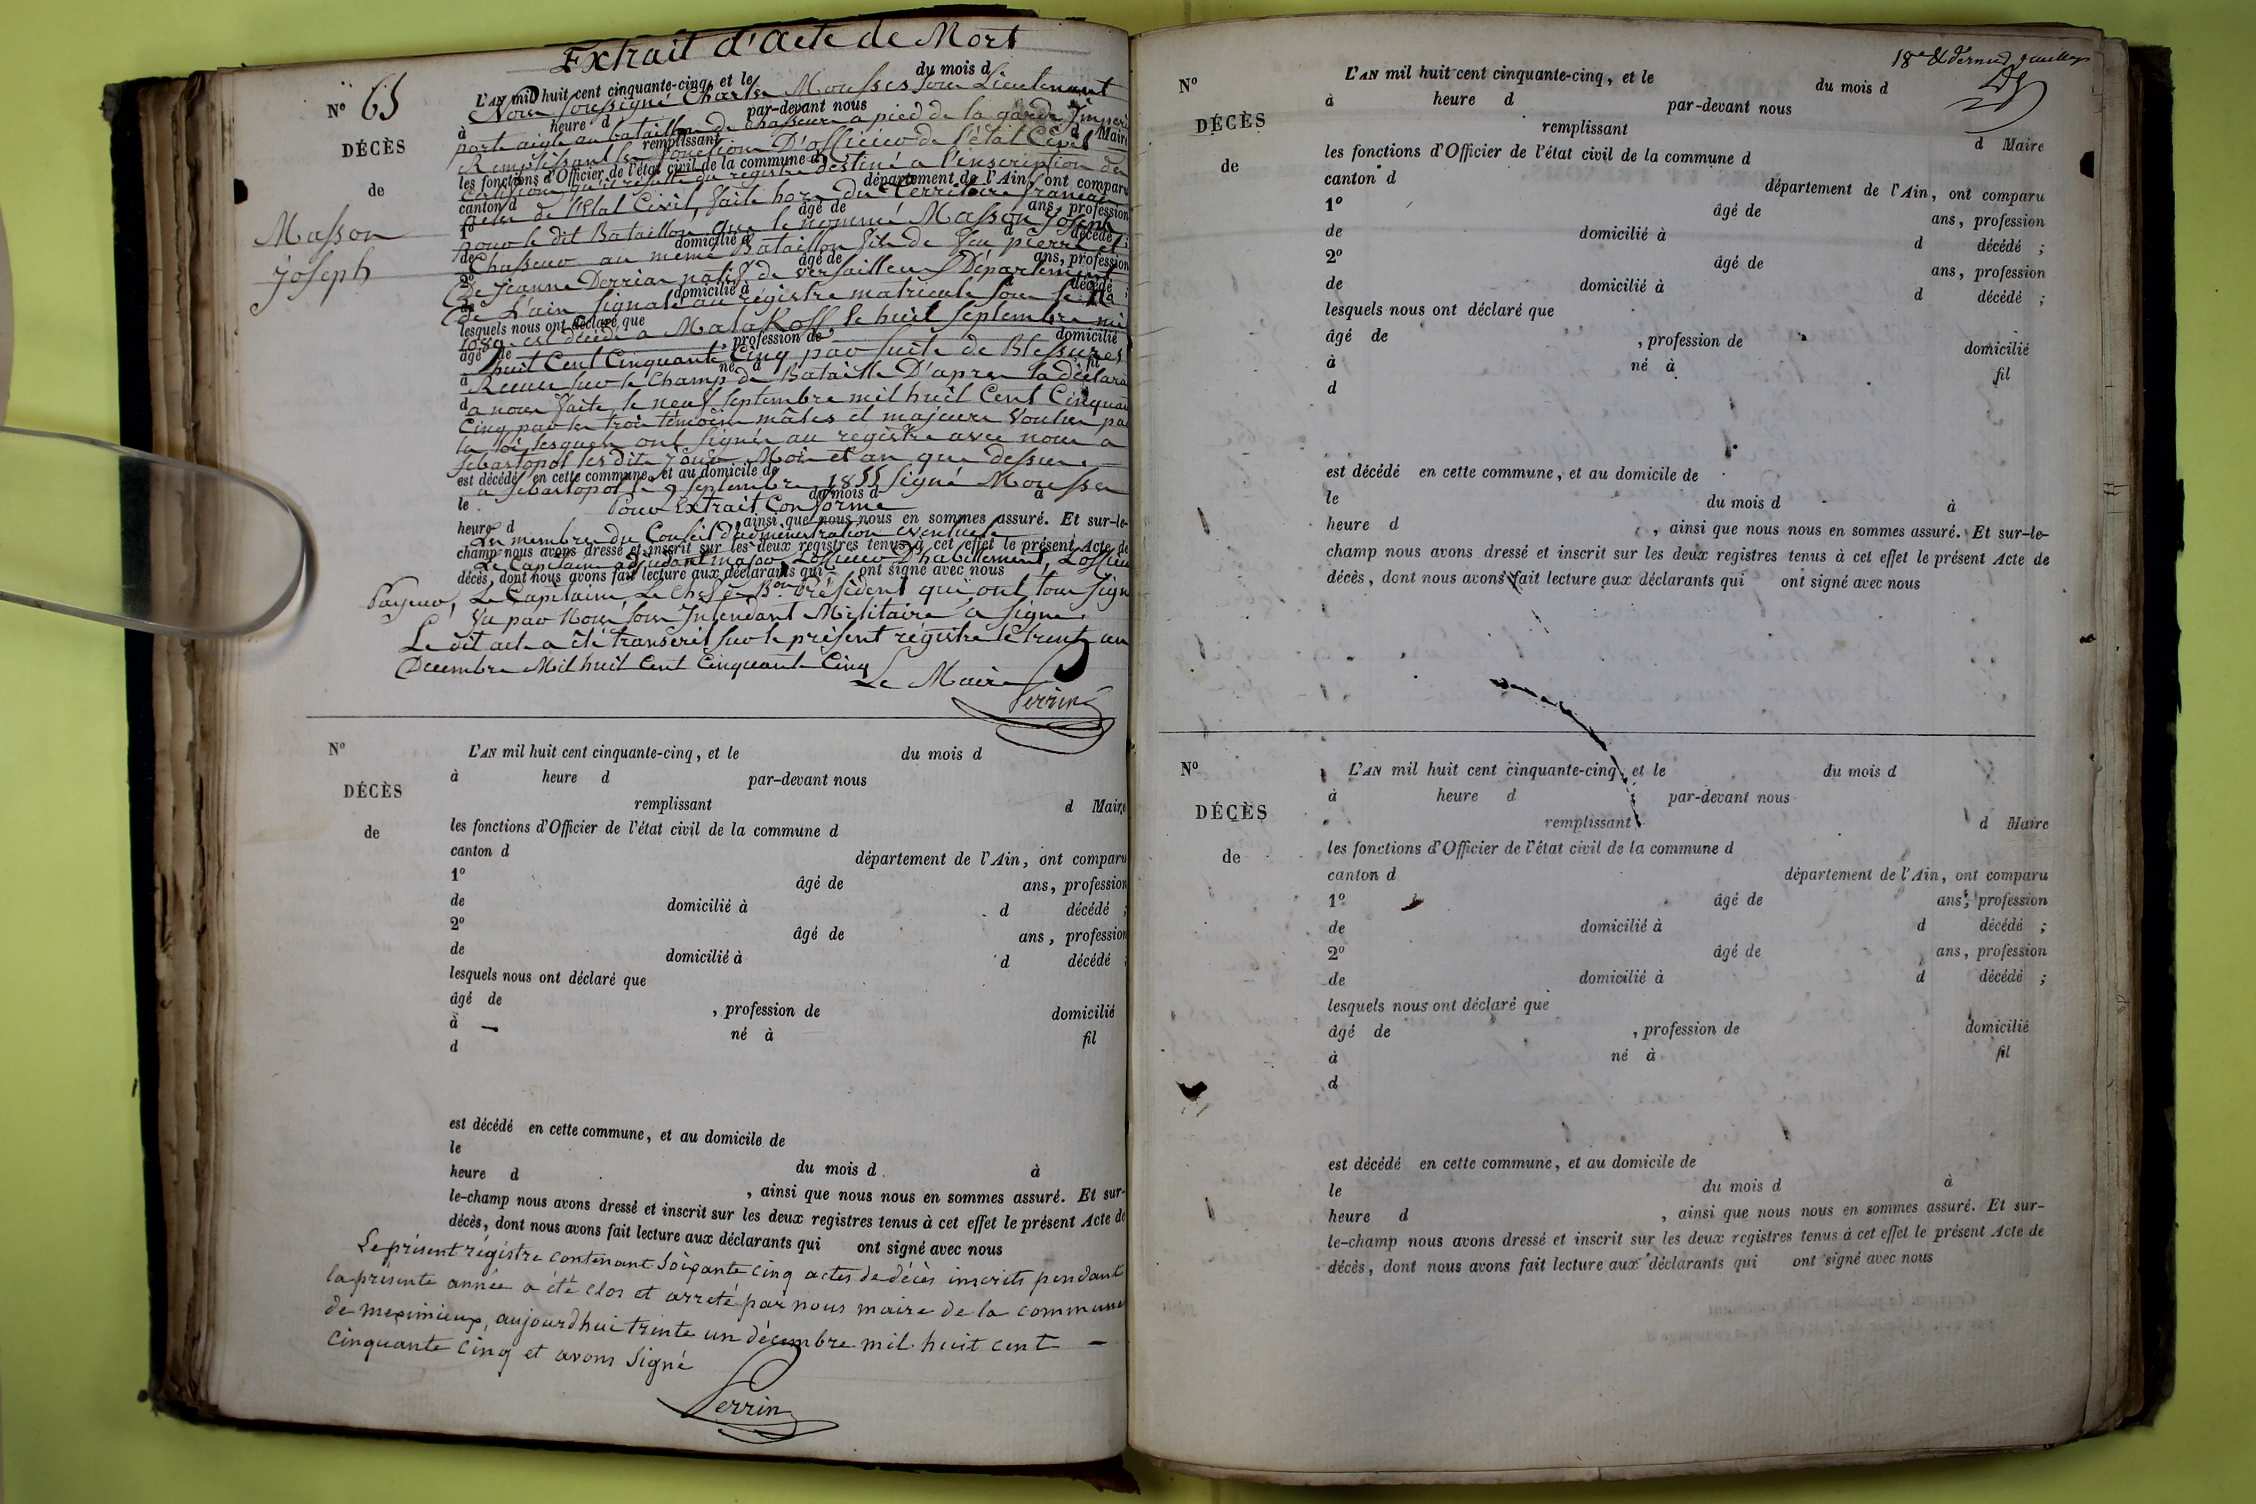 Extrait d'acte de Mort
N° 65
DÉCÈS
de
Masson
joseph
L'AN mil huit cent cinquante-cinq, et le du mois d
Nous soussigné Charles Mousses sous Lieutenant
à heure d par-devant nous
porte aigle au bataillon de chasseurs a pied de la garde Impéri
remplissant d Maire
Remplissant les fonctions D'officier de l'état Civil
les fonctions d'Officier de l'état civil de la commune d
qu'il résulte du registre destiné a l'inscription des
canton d département de l'Ain, ont comparu
actes de l'Etat Civil, faits hors du Territoire français
1° âgé de ans, profession
pour le dit Bataillon que le nommé Masson joseph
de domicilié à d décédé ;
Chasseur au même Bataillon fils de feu pierre et
2° âgé de ans, profession
de jeanne Derrias natif de Versailleux Département
de domicilié à d décédé ;
de L'ain signalé au régistre matricule sous le N°
lesquels nous ont déclaré que
1089 est décédé a Malakoff le huit septembre mil
âgé de , profession de domicilié
huit Cent Cinquante Cinq par suite de Blessures
à né à fil
Recues sur le Champ de Bataille D'après la déclara
d
a nous faite le neuf septembre mil huit Cent Cinquante
Cinq par les trois témoins mâles et majeurs Voulus pa
la loi lesquels ont signés au registre avec nous a
sebastopol les dits jour Mois et an que dessus
est décédé en cette commune, et au domicile de
a sebastopol le 9 septembre 1855 signé Mousses
le du mois d à
Pour Extrait Conforme
heure d , ainsi que nous nous en sommes assuré. Et sur-le-
Les membres du Conseil d'administration éventuel
champ nous avons dressé et inscrit sur les deux registres tenus à cet effet le présent Acte de
Le Capitaine adjudant major L'officier d'habillement, L'officier
décès, dont nous avons fait lecture aux déclarants qui ont signé avec nous
Payeur, Le Capitaine, Le Chef de Bon Président qui ont tous signé
Vu par Nous sous Intendant Militaire a signé
Le dit acte a été transcrit sur le présent régistre le trente un
Décembre Mil huit Cent Cinquante Cinq
Le Maire
Perrin
N°
DÉCÈS
de
L'AN mil huit cent cinquante-cinq, et le du mois d
à heure d par-devant nous
remplissant d Maire
les fonctions d'Officier de l'état civil de la commune d
canton d département de l'Ain, ont comparu
1° âgé de ans, profession
de domicilié à d décédé ;
2° âgé de ans, profession
de domicilié à d décédé ;
lesquels nous ont déclaré que
âgé de , profession de domicilié
à né à fil
d
est décédé en cette commune, et au domicile de
le du mois d à
heure d , ainsi que nous nous en sommes assuré. Et sur-
le-champ nous avons dressé et inscrit sur les deux registres tenus à cet effet le présent Acte de
décès, dont nous avons fait lecture aux déclarants qui ont signé avec nous
Le présent régistre contenant soixante cinq actes de décès inscrits pendant
la présente année a été clos et arrêté par nous maire de la commune
de meximieux, aujourdhui trente un décembre mil huit cent
cinquante cinq et avons signé
Perrin
18e & dernier feuillet
N°
DÉCÈS
de
L'AN mil huit cent cinquante-cinq, et le du mois d
à heure d par-devant nous
remplissant d Maire
les fonctions d'Officier de l'état civil de la commune d
canton d département de l'Ain, ont comparu
1° âgé de ans, profession
de domicilié à d décédé ;
2° âgé de ans, profession
de domicilié à d décédé ;
lesquels nous ont déclaré que
âgé de , profession de domicilié
à né à fil
d
est décédé en cette commune, et au domicile de
le du mois d à
heure d , ainsi que nous nous en sommes assuré. Et sur-le-
champ nous avons dressé et inscrit sur les deux registres tenus à cet effet le présent Acte de
décès, dont nous avons fait lecture aux déclarants qui ont signé avec nous
N°
DÉCÈS
de
L'AN mil huit cent cinquante-cinq, et le du mois d
à heure d par-devant nous
remplissant d Maire
les fonctions d'Officier de l'état civil de la commune d
canton d département de l'Ain, ont comparu
1° âgé de ans, profession
de domicilié à d décédé ;
2° âgé de ans, profession
de domicilié à d décédé ;
lesquels nous ont déclaré que
âgé de , profession de domicilié
à né à fil
d
est décédé en cette commune, et au domicile de
le du mois d à
heure d , ainsi que nous nous en sommes assuré. Et sur-
le-champ nous avons dressé et inscrit sur les deux registres tenus à cet effet le présent Acte de
décès, dont nous avons fait lecture aux déclarants qui ont signé avec nous